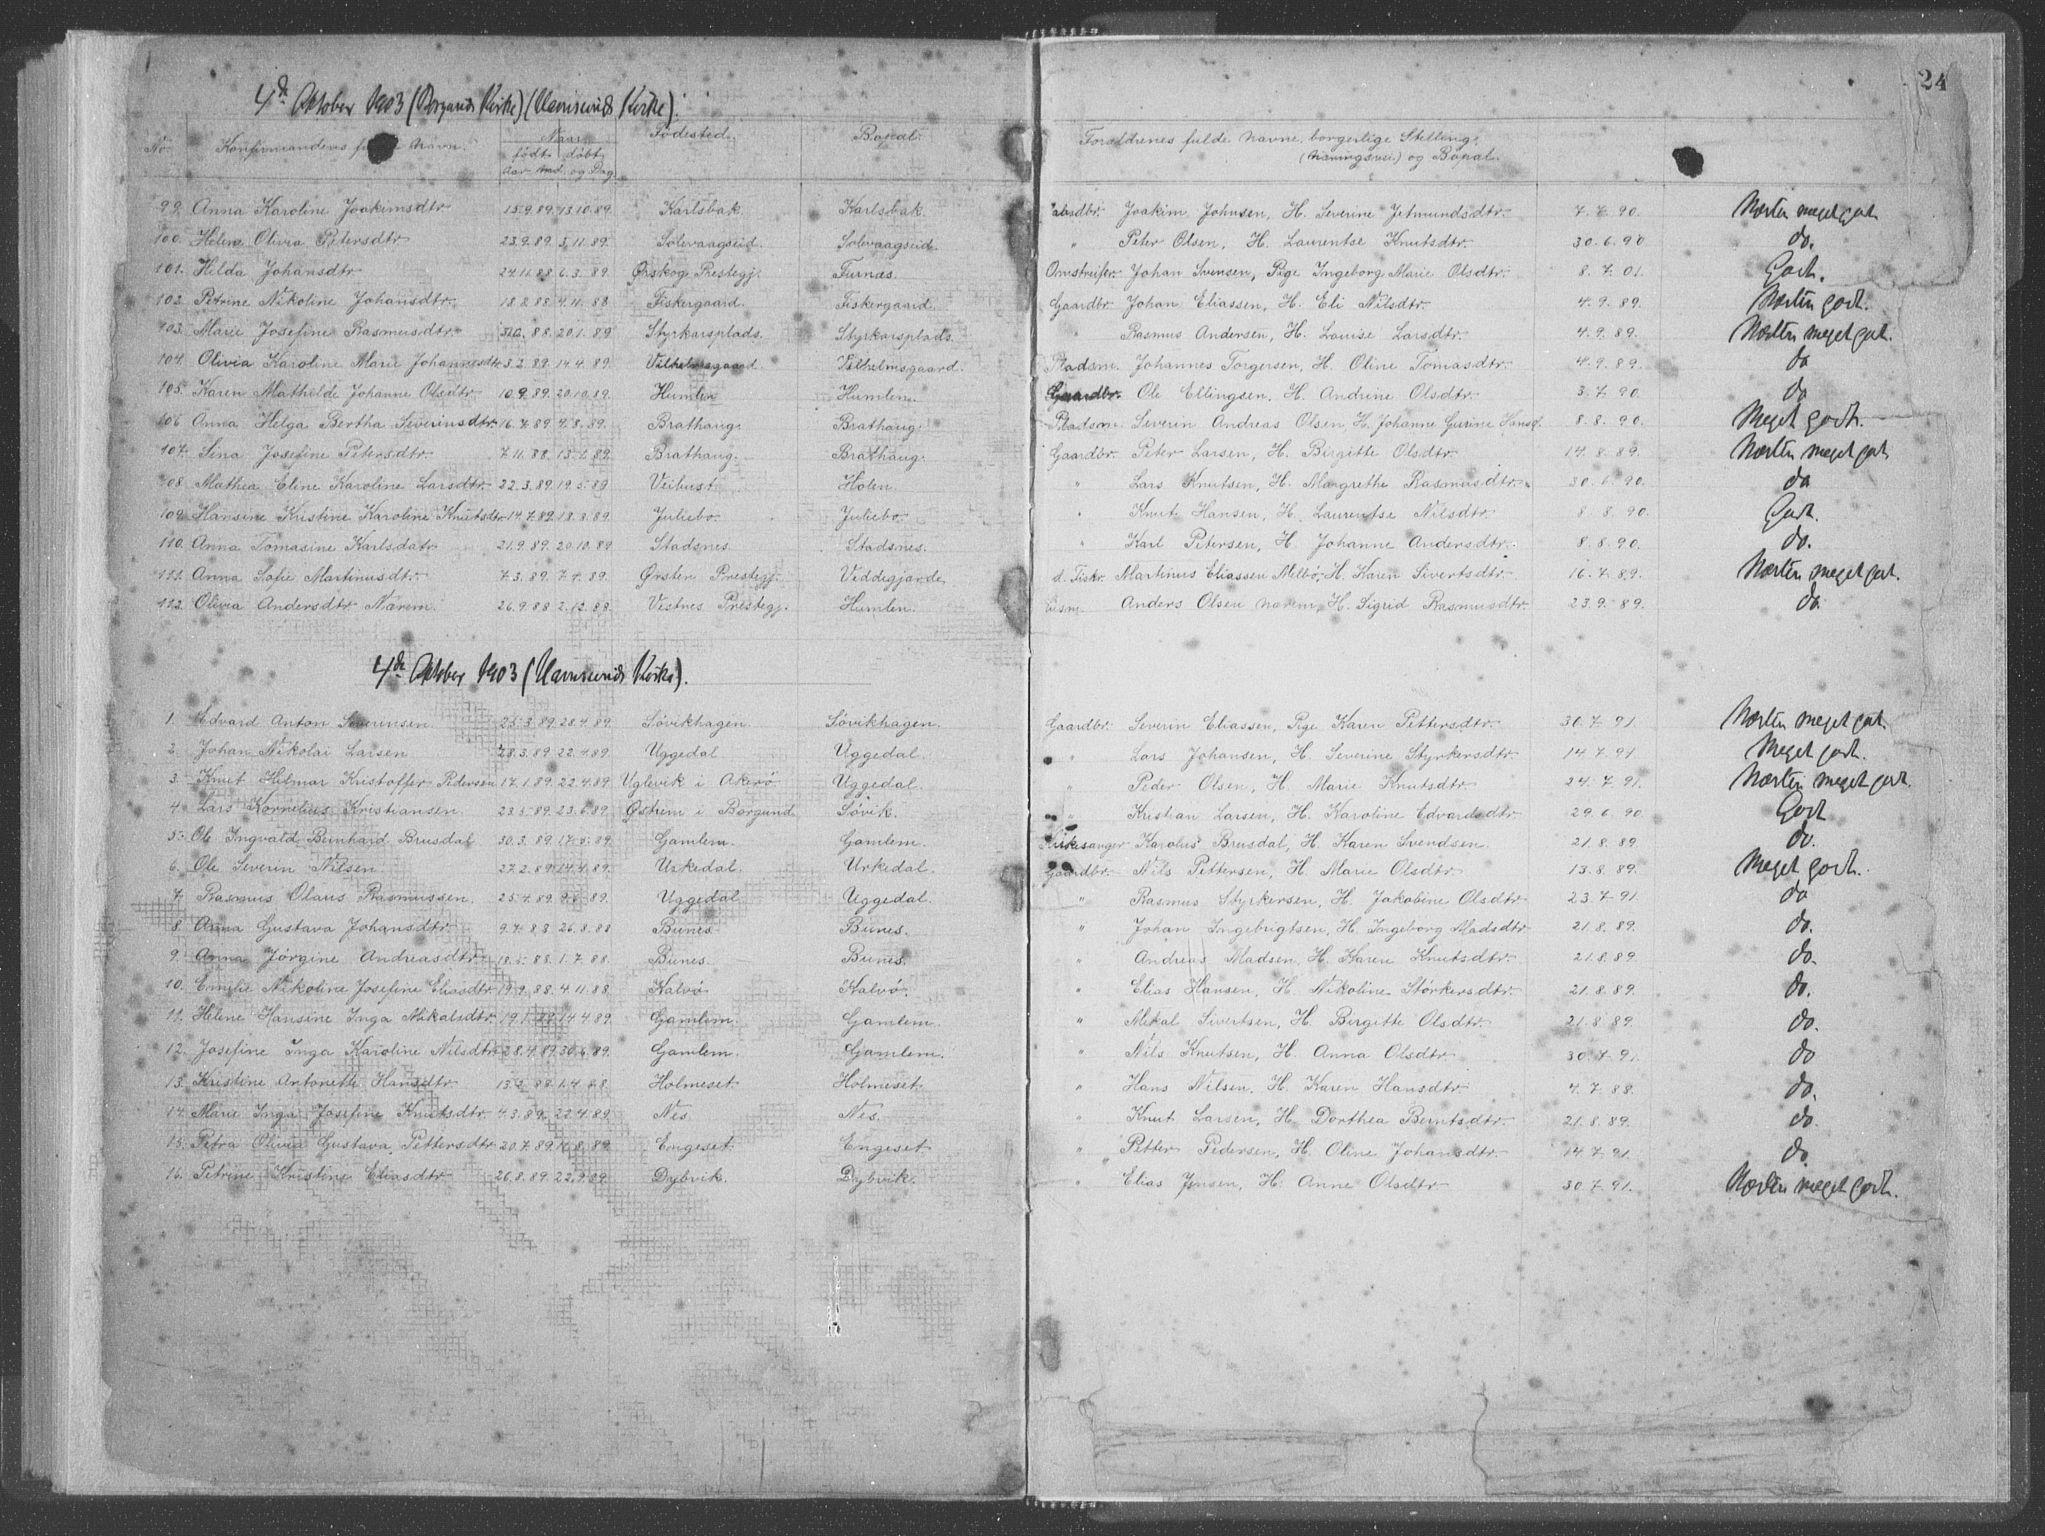 24
4de Oktober 1903 (Borgunds Kirke) (Hamsunds Kirke).
No. Konfirmandens fulde Navn. Naar født døbt Aar Md. og Dag Fødested. Bopæl. Forældrenes fulde Navne, borgerlige Stilling, (Næringsvei) og Bopæl.
99. Anna Karoline Joakimsdtr 15.9.89. 13.10.89. Karlsbak Karlsbak. Gaardbr. Joakim Johnsen, H. Severine Jetmundsdtr. 7.7.90. Næsten meget godt
100. Helene Olivia Petersdtr 23.9.89. 3.11.89. Solevaagseid. Solevaagseid. " Peter Olsen, H. Laurentse Knutsdtr. 30.6.90 do.
101. Hilda Johansdtr 24.11.88. 6.3.89. Ørskog Prestegj. Furnæs. Omstreifer Johan Svensen, Pige Ingeborg Marie Olsdtr. 8.7.01. Godt.
102. Petrine Nikoline Johansdtr. 18.2.88. 4.11.88 Fiskergaard. Fiskergaard. Gaardbr. Johan Eliassen, H. Eli Nilsdtr. 4.9.89. Næsten godt.
103. Marie Josefine Rasmusdtr. 88. 20.1.89 Styrkarsplads. Styrkarsplads. " Rasmus Andersen, H. Louise Larsdtr. 4.9.89. Næsten meget godt.
104. Olivia Karoline Marie Johannesdtr 3.2.89. 14.4.89. Vilhelmsgaard Vilhelmsgaard. Pladsm. Johannes Torgersen, H. Oline Tomasdtr. 4.9.89. do
105. Karen Mathilde Johanne Olsdtr. 10.9.89. 20.10.89. Humlen Humlen. Gaardbr. Ole Ellingsen, H. Andrine Olsdtr. 3.7.90. do
106 Anna Helga Bertha Severinsdtr. 16.7.89. 4.8.89. Brathaug. Brathaug. Pladsm. Severin Andreas Olsen, H. Johanne Gurine Hansd. 8.8.90. Meget godt.
107. Sina Josefine Petersdtr. 7.11.88. 13.1.89 Brathaug. Brathaug. Gaardbr. Peter Larsen, H. Birgitte Olsdtr. 14.8.89. Næsten meget godt
108. Mathea Eline Karoline Larsdtr. 22.3.89. 19.5.89 Veibust Holen. " Lars Knutsen, H. Margrethe Rasmusdtr. 30.6.90. do
109. Hansine Kristine Karoline Knutsdtr 14.7.89. 18.8.89. Juliebø. Juliebø. " Knut Hansen, H. Laurentse Nilsdtr. 8.8.90. Godt.
110. Anna Tomasine Karlsdatr 21.9.89. 20.10.89 Stadsnes Stadsnes. " Karl Petersen, H. Johanne Andersdtr. 8.8.90. do.
111. Anna Sofie Martinusdtr. 7.3.89. 7.4.89. Ørsten Prestegj. Viddegjærde d. Fiskr. Martinus Eliassen Melbø, H. Karen Sivertsdtr. 16.7.89. Næsten meget godt.
112. Olivia Andersdtr Nærem. 26.9.88. 2.12.88. Vestnes Prestegj. Humlen. Anders Olsen Nærem, H. Sigrid Rasmusdtr. 23.9.89. do.
4de Oktober 1903 (Hamsunds Kirke).
1. Edvard Anton Severinsen 25.3.89. 28.4.89. Søvikhagen Søvikhagen. Gaardbr. Severin Eliassen, Pige Karen Pettersdtr. 30.7.91 Næsten meget godt
2. Johan Nikolai Larsen 28.3.89. 22.4.89 Uggedal Uggedal. " Lars Johansen, H. Severine Styrkersdtr. 14.7.91 Meget godt.
3. Knut Hilmar Kristoffer Pedersen 17.1.89. 22.4.89 Uglevik i Akerø Uggedal. " Peder Olsen, H. Marie Knutsdtr. 24.7.91. Næsten meget godt.
4. Lars Kornelius Kristiansen 23.5.89. 23.6.89. Østrem i Borgund Søvik. " Kristian Larsen, H. Karoline Edvardsdtr. 29.6.90 Godt
5. Ole Ingvald Bernhard Brusdal 30.3.89. 17.5.89 Gamlem. Gamlem. Kirkesanger Karolus Brusdal, H. Karen Svendsen. 21.8.89. do.
6. Ole Severin Nilsen 27.2.89. 14.4.89. Urkedal. Urkedal. Gaardbr. Nils Pettersen, H. Marie Olsdtr. 13.8.89. Meget godt.
7. Rasmus Olaus Rasmussen. 25.4.89. 89. Uggedal Uggedal. " Rasmus Styrkersen, H. Jakobine Olsdtr. 23.7.91. do
8. Anna Gustava Johansdtr. 9.7.88 26.8.88 Bunes. Bunes. " Johan Ingebrigtsen, H. Ingeborg Madsdtr. 21.8.89. do.
9. Anna Jørgine Andreasdtr. 18.5.88. 1.7.88. Bunes. Bunes. " Andreas Madsen, H. Karen Knutsdtr. 21.8.89 do.
10. Emilie Nikoline Josefine Eliasdtr. 19.9.88. 4.11.88. Kalvø Kalvø. " Elias Hansen, H. Nikoline Størkersdtr. 21.8.89. do.
11. Helene Hansine Inga Mikalsdtr. 19.1.89. 14.4.89. Gamlem. Gamlem. " Mikal Sivertsen, H. Birgitte Olsdtr. 21.8.89. do.
12. Josefine Inga Karoline Nilsdtr. 28.4.89. 30.6.89. Gamlem. Gamlem. " Nils Knutsen, H. Anna Olsdtr. 30.7.91. do
13. Kristine Antonette Hansdtr. 88. 1.4.88. Holmeset. Holmeset. " Hans Nilsen, H. Karen Hansdtr. 4.7.88. do.
14. Marie Inga Josefine Knutsdtr. 4.3.89. 22.4.89. Nes. Nes. " Knut Larsen, H. Dorthea Berntsdtr. 21.8.89. do.
15. Petra Olivia Gustava Pettersdtr. 20.7.89. 8.89. Engeset. Engeset. " Petter Pedersen, H. Oline Johansdtr. 14.7.91. do
16. Petrine Kristine Eliasdtr. 26.8.89. 22.9.89. Dybvik. Dybvik. " Elias Jensen, H. Anne Olsdtr. 30.7.91. Næsten meget godt.